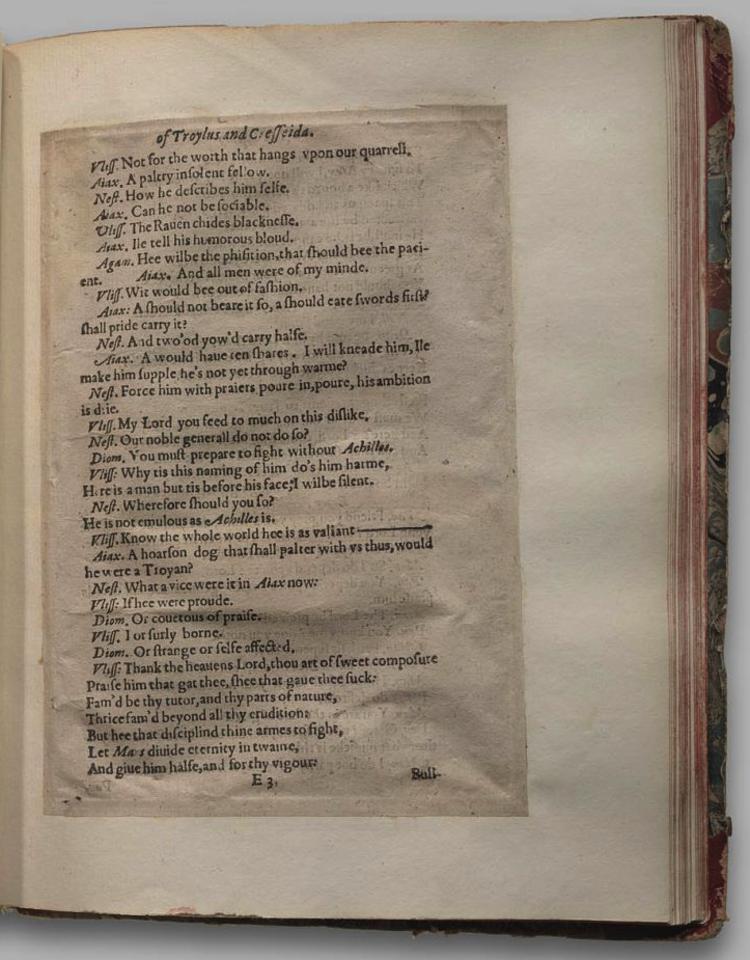 of Troylus and Cresseida.
Vliss. Not for the worth that hangs vpon our quarrell.
Aiax. A paltry insolent fellow.
Nest. How he describes him selfe.
Aiax. Can he not be sociable.
Vliss. The Rauen chides blacknesse.
Aiax. Ile tell his humorous bloud.
Agam. Hee wilbe the phisition, that should bee the paci-
ent. Aiax. And all men were of my minde.
Vliss. Wit would bee out of fashion.
Aiax: A should not beare it so, a should eate swords first?
shall pride carry it?
Nest. And two'od yow'd carry halfe.
Aiax. A would haue ten shares. I will kneade him, Ile
make him supple, he's not yet through warme?
Nest. Force him with praiers poure in, poure, his ambition
is drie.
Vliss. My Lord you feed to much on this dislike.
Nest. Our noble generall do not do so?
Diom. You must prepare to fight without Achilles.
Vliss: Why tis this naming of him do's him harme,
Here is a man but tis before his face, I wilbe silent.
Nest. Wherefore should you so?
He is not emulous as Achilles is.
Vliss. Know the whole world hee is as valiant ———
Aiax. A hoarson dog that shall palter with vs thus, would
he were a Troyan?
Nest. What a vice were it in Aiax now:
Vliss: If hee were proude.
Diom. Or couetous of praise.
Vliss. I or surly borne.
Diom. Or strange or selfe affected.
Vliss: Thank the heauens Lord, thou art of sweet composure
Praise him that gat thee, shee that gaue thee suck:
Fam'd be thy tutor, and thy parts of nature,
Thrice fam'd beyond all thy erudition:
But hee that disciplind thine armes to fight,
Let Mars diuide eternity in twaine,
And giue him halfe, and for thy vigour:
E 3. Bull-